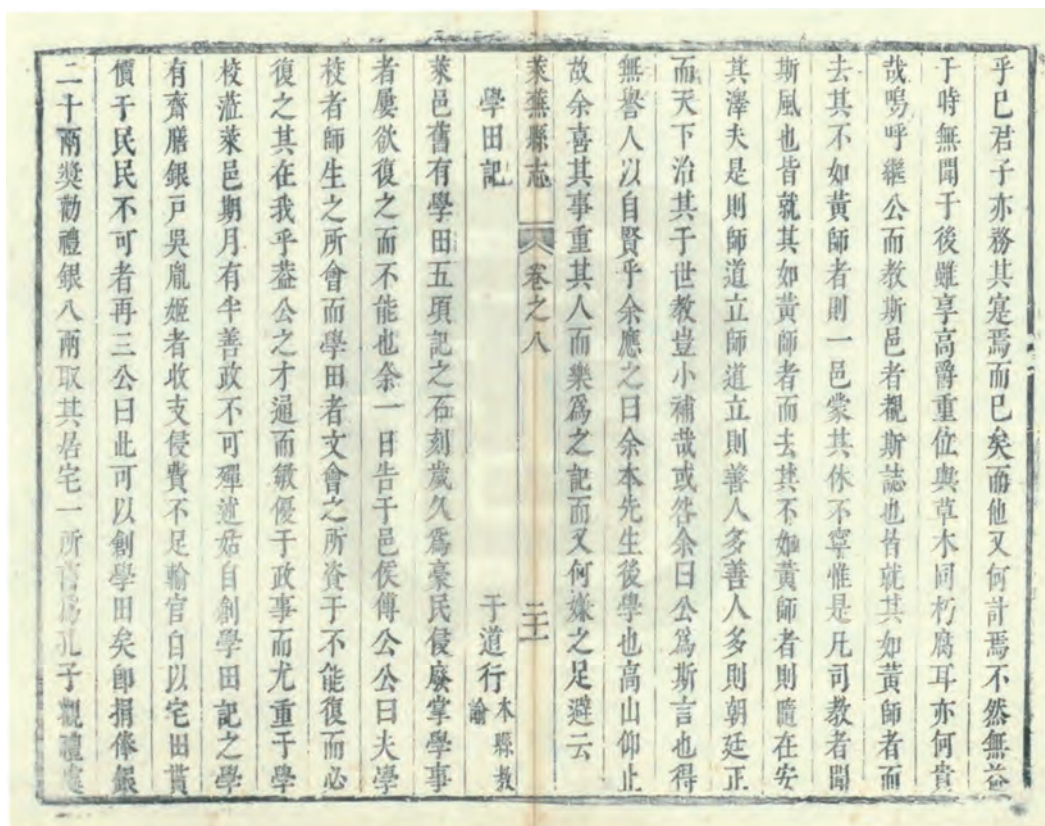 乎已君子亦務其寔焉而已矣而他又何計焉不然無益
于時無聞于後雖享高爵重位與草木同朽腐耳亦何貴
哉嗚呼繼公而教斯邑者觀斯誌也皆就其如黃師者而
去其不如黃師者則一邑蒙其休不寧惟是凡司教者聞
斯風也皆就其如黃師者而去其不如黃師者則隨在安
其澤夫是則師道立師道立則善人多善人多則朝廷正
而天下治其于世教豈小補哉或咎余曰公爲斯言也得
無譽人以自賢乎余應之曰余本先生後學也高山仰止
故余喜其事重其人而樂爲之記而又何嫌之足避云
萊蕪縣志 卷之八 二十一
學田記 于道行本縣教諭
萊邑舊有學田五項記之石刻歲久爲豪民侵廢掌學事
者屢欲復之而不能也余一日告于邑侯傅公公曰夫學
校者師生之所會而學田者文會之所資于不能復而必
復之其在我乎葢公之才通而敏優于政事而尤重于學
校蒞萊邑期月有半善政不可殫述姑自創學田記之學
有齋膳銀戸吳胤姬者收支侵費不足輸官自以宅田貰
價于民民不可者再三公曰此可以創學田矣卽捐俸銀
二十兩奬勸禮銀八兩取其居宅一所舊爲孔子觀禮處